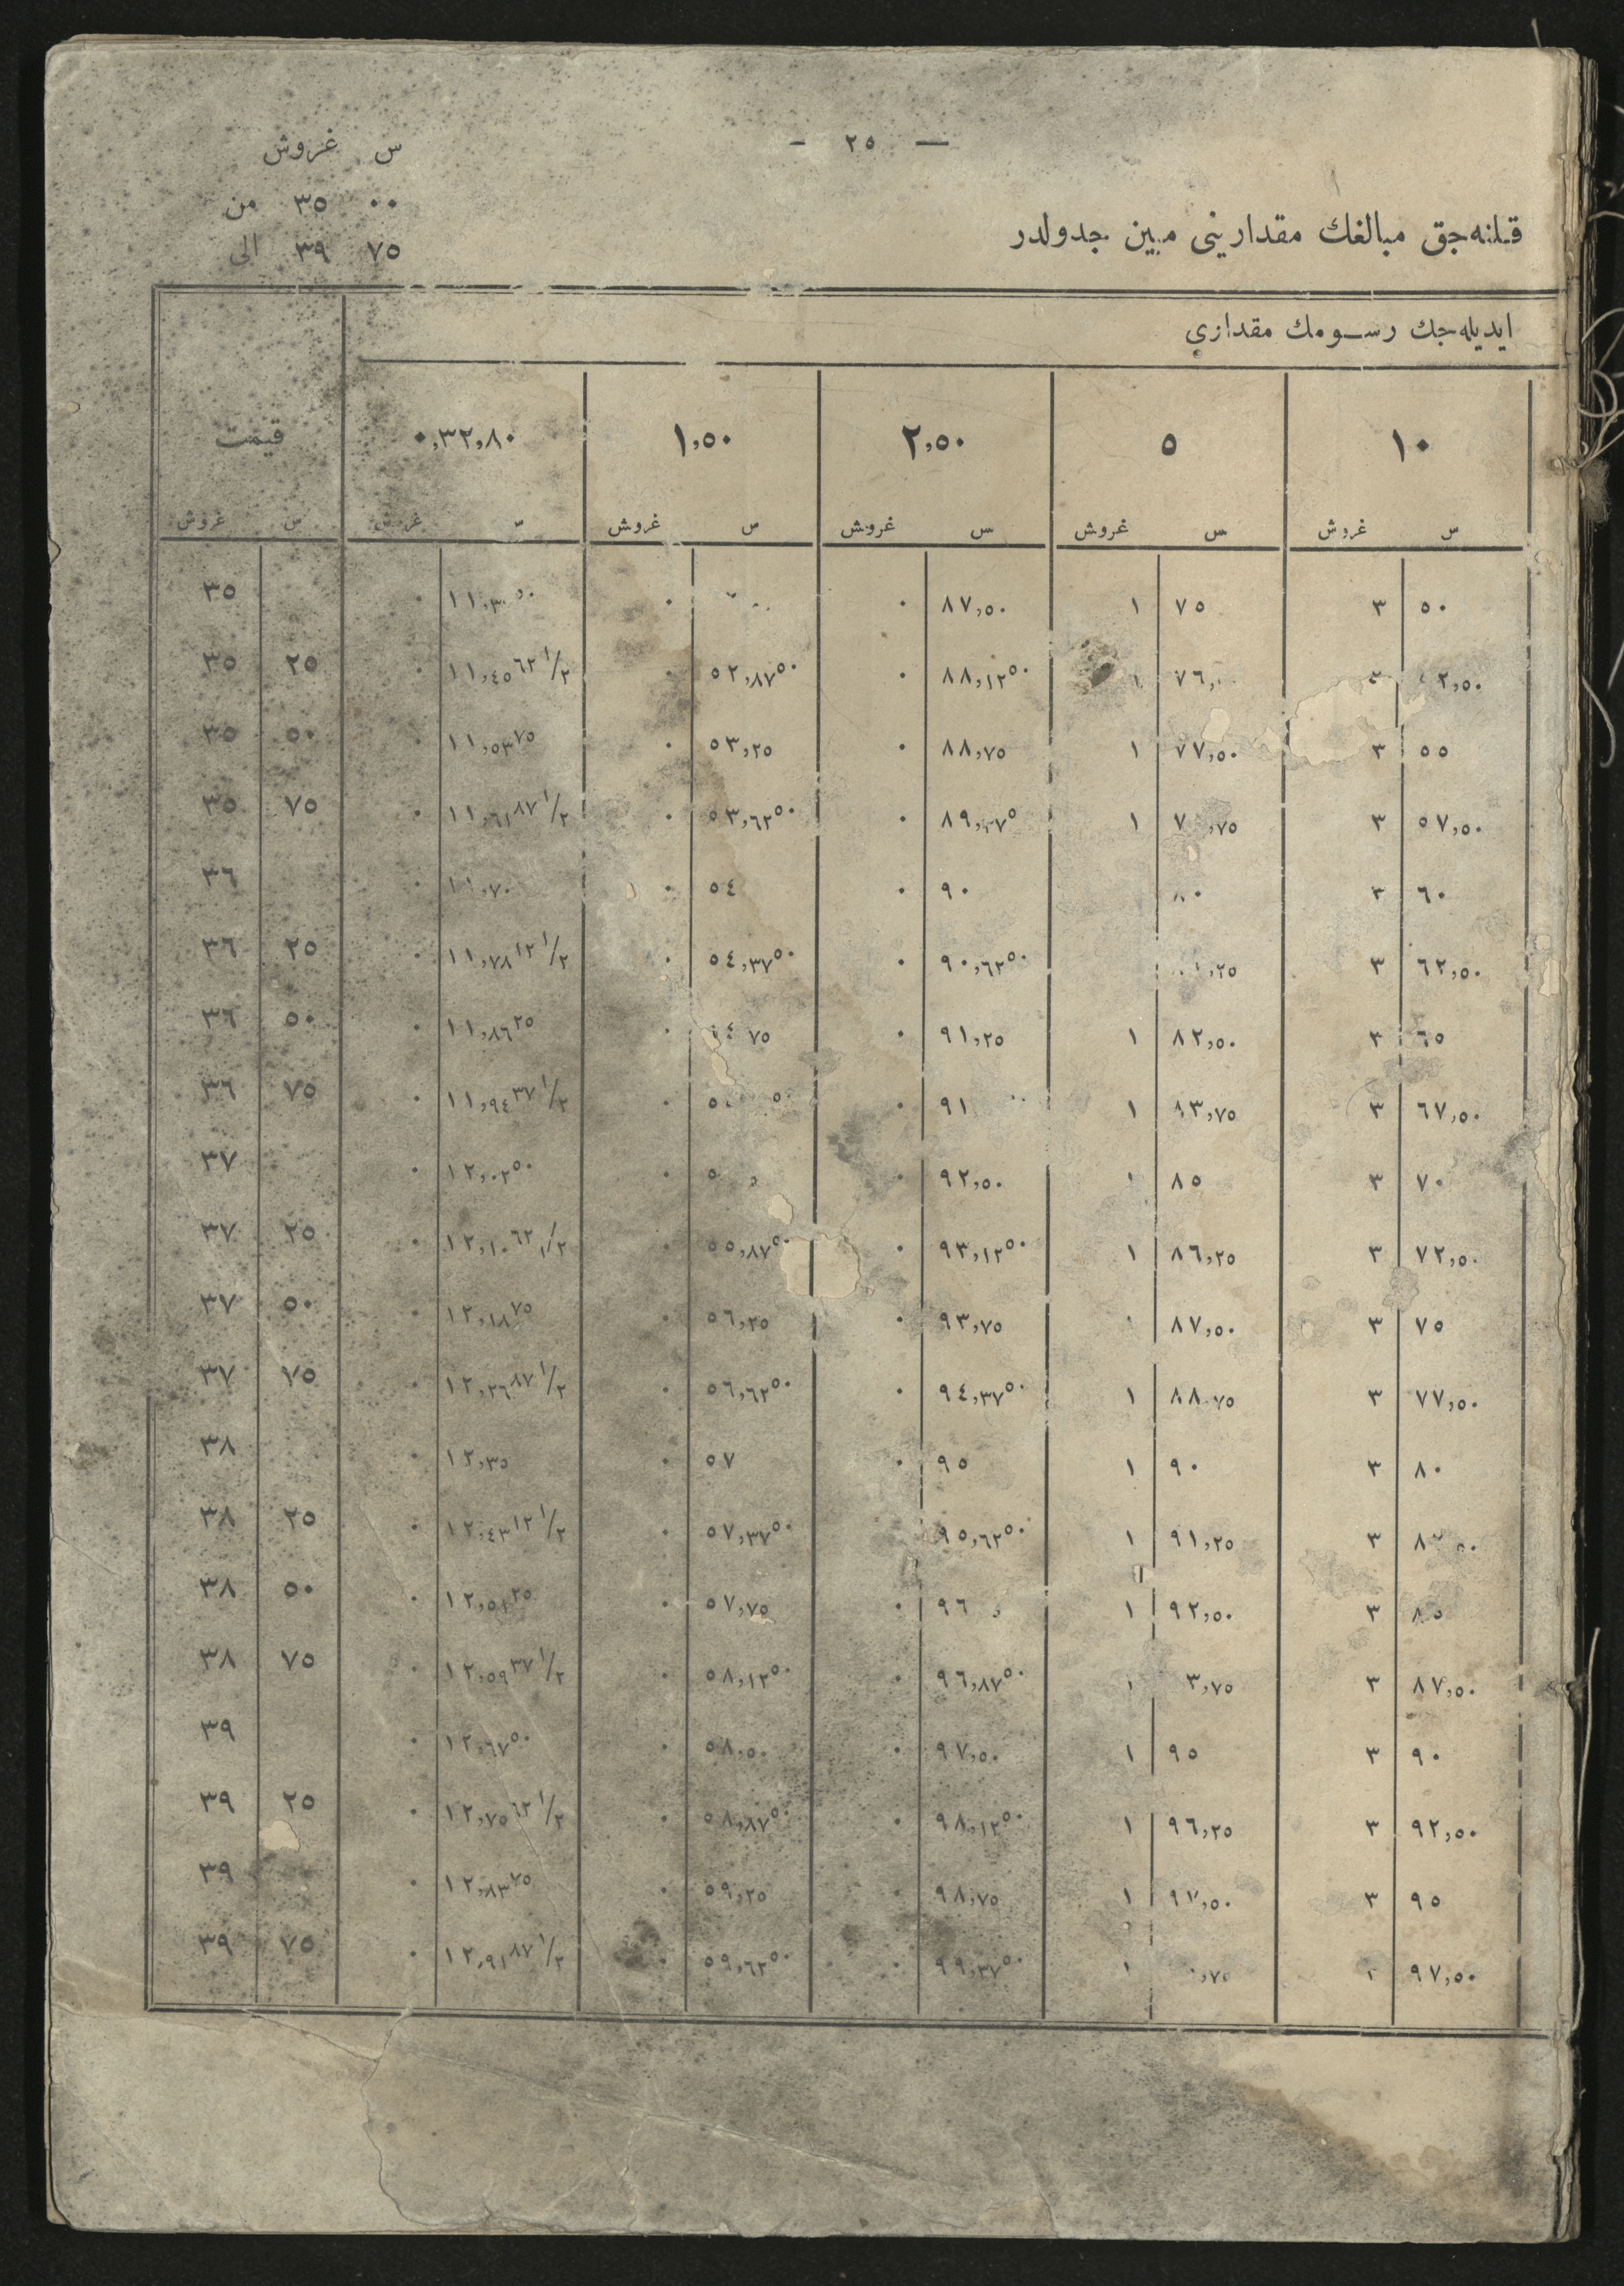 — ٢٥ —
س غروش
٠٠ ٣٥ من
٧٥ ٣٩ الى
قلنه‌جق مبالغك مقدارينى مبين جدولدر
ايديله‌جك رسومك مقدارى
١٠ ٥ ٢,٥٠ ١,٥٠ ٠,٣٢,٨٠ قيمت
س غروش س غروش س غروش س غروش س غروش س غروش
٥٠ ٣ ٧٥ ١ ٨٧,٥٠ ٠ ٠ ٠ ٣٥
٣ ١ ٨٨,١٢٥٠ ٠ ٥٢,٨٧٥٠ ٠ ١١,٤٥٦٢ ١/٢ ٠ ٢٥ ٣٥
٥٥ ٣ ٧٧,٥٠ ١ ٨٨,٧٥ ٠ ٥٣,٢٥ ٠ ١١,٥٣٧٥ ٠ ٥٠ ٣٥
٥٧,٥٠ ٣ ١ ٠ ٥٣,٦٢٥٠ ٠ ١١,٦١٨٧ ١/٢ ٠ ٧٥ ٣٥
٦٠ ٣ ٨٠ ٩٠ ٠ ٥٤ ٠ ١١,٧٠ ٠ ٣٦
٦٢,٥٠ ٣ ٩٠,٦٢٥٠ ٠ ٥٤,٣٧٥٠ ٠ ١١,٧٨١٢ ١/٢ ٠ ٢٥ ٣٦
٦٥ ٣ ٨٢,٥٠ ١ ٩١,٢٥ ٠ ٠ ١١,٨٦٢٥ ٠ ٥٠ ٣٦
٦٧,٥٠ ٣ ٨٣,٧٥ ١ ٩١ ٠ ٠ ١١,٩٤٣٧ ١/٢ ٠ ٧٥ ٣٦
٧٠ ٣ ٨٥ ١ ٩٢,٥٠ ٠ ٠ ١٢,٠٢٥٠ ٠ ٣٧
٧٢,٥٠ ٣ ٨٦,٢٥ ١ ٩٣,١٢٥٠ ٠ ٥٥,٨٧٥٠ ٠ ١٢,١٠٦٢ ١/٢ ٠ ٢٥ ٣٧
٧٥ ٣ ٨٧,٥٠ ١ ٩٣,٧٥ ٠ ٥٦,٢٥ ٠ ١٢,١٨٧٥ ٠ ٥٠ ٣٧
٧٧,٥٠ ٣ ٨٨,٧٥ ١ ٩٤,٣٧٥٠ ٠ ٥٦,٦٢٥٠ ٠ ١٢,٢٦٨٧ ١/٢ ٠ ٧٥ ٣٧
٨٠ ٣ ٩٠ ١ ٩٥ ٠ ٥٧ ٠ ١٢,٣٥ ٠ ٣٨
٣ ٩١,٢٥ ١ ٩٥,٦٢٥٠ ٥٧,٣٧٥٠ ٠ ١٢,٤٣١٢ ١/٢ ٠ ٢٥ ٣٨
٨٥ ٣ ٩٢,٥٠ ١ ٩٦ ٠ ٥٧,٧٥ ٠ ١٢,٥١٢٥ ٠ ٥٠ ٣٨
٨٧,٥٠ ٣ ٣,٧٥ ١ ٩٦,٨٧٥٠ ٠ ٥٨,١٢٥٠ ٠ ١٢,٥٩٣٧ ١/٢ ٠ ٧٥ ٣٨
٩٠ ٣ ٩٥ ١ ٩٧,٥٠ ٠ ٥٨,٥٠ ٠ ١٢,٦٧٥٠ ٠ ٣٩
٩٢,٥٠ ٣ ٩٦,٢٥ ١ ٩٨,١٢٥٠ ٠ ٥٨,٨٧٥٠ ٠ ١٢,٧٥٦٢ ١/٢ ٠ ٢٥ ٣٩
٩٥ ٣ ٩٧,٥٠ ١ ٩٨,٧٥ ٠ ٥٩,٢٥ ٠ ١٢,٨٣٧٥ ٠ ٣٩
٩٧,٥٠ ٣ ١ ٩٩,٣٧٥٠ ٠ ٥٩,٦٢٥٠ ٠ ١٢,٩١٨٧ ١/٢ ٠ ٧٥ ٣٩